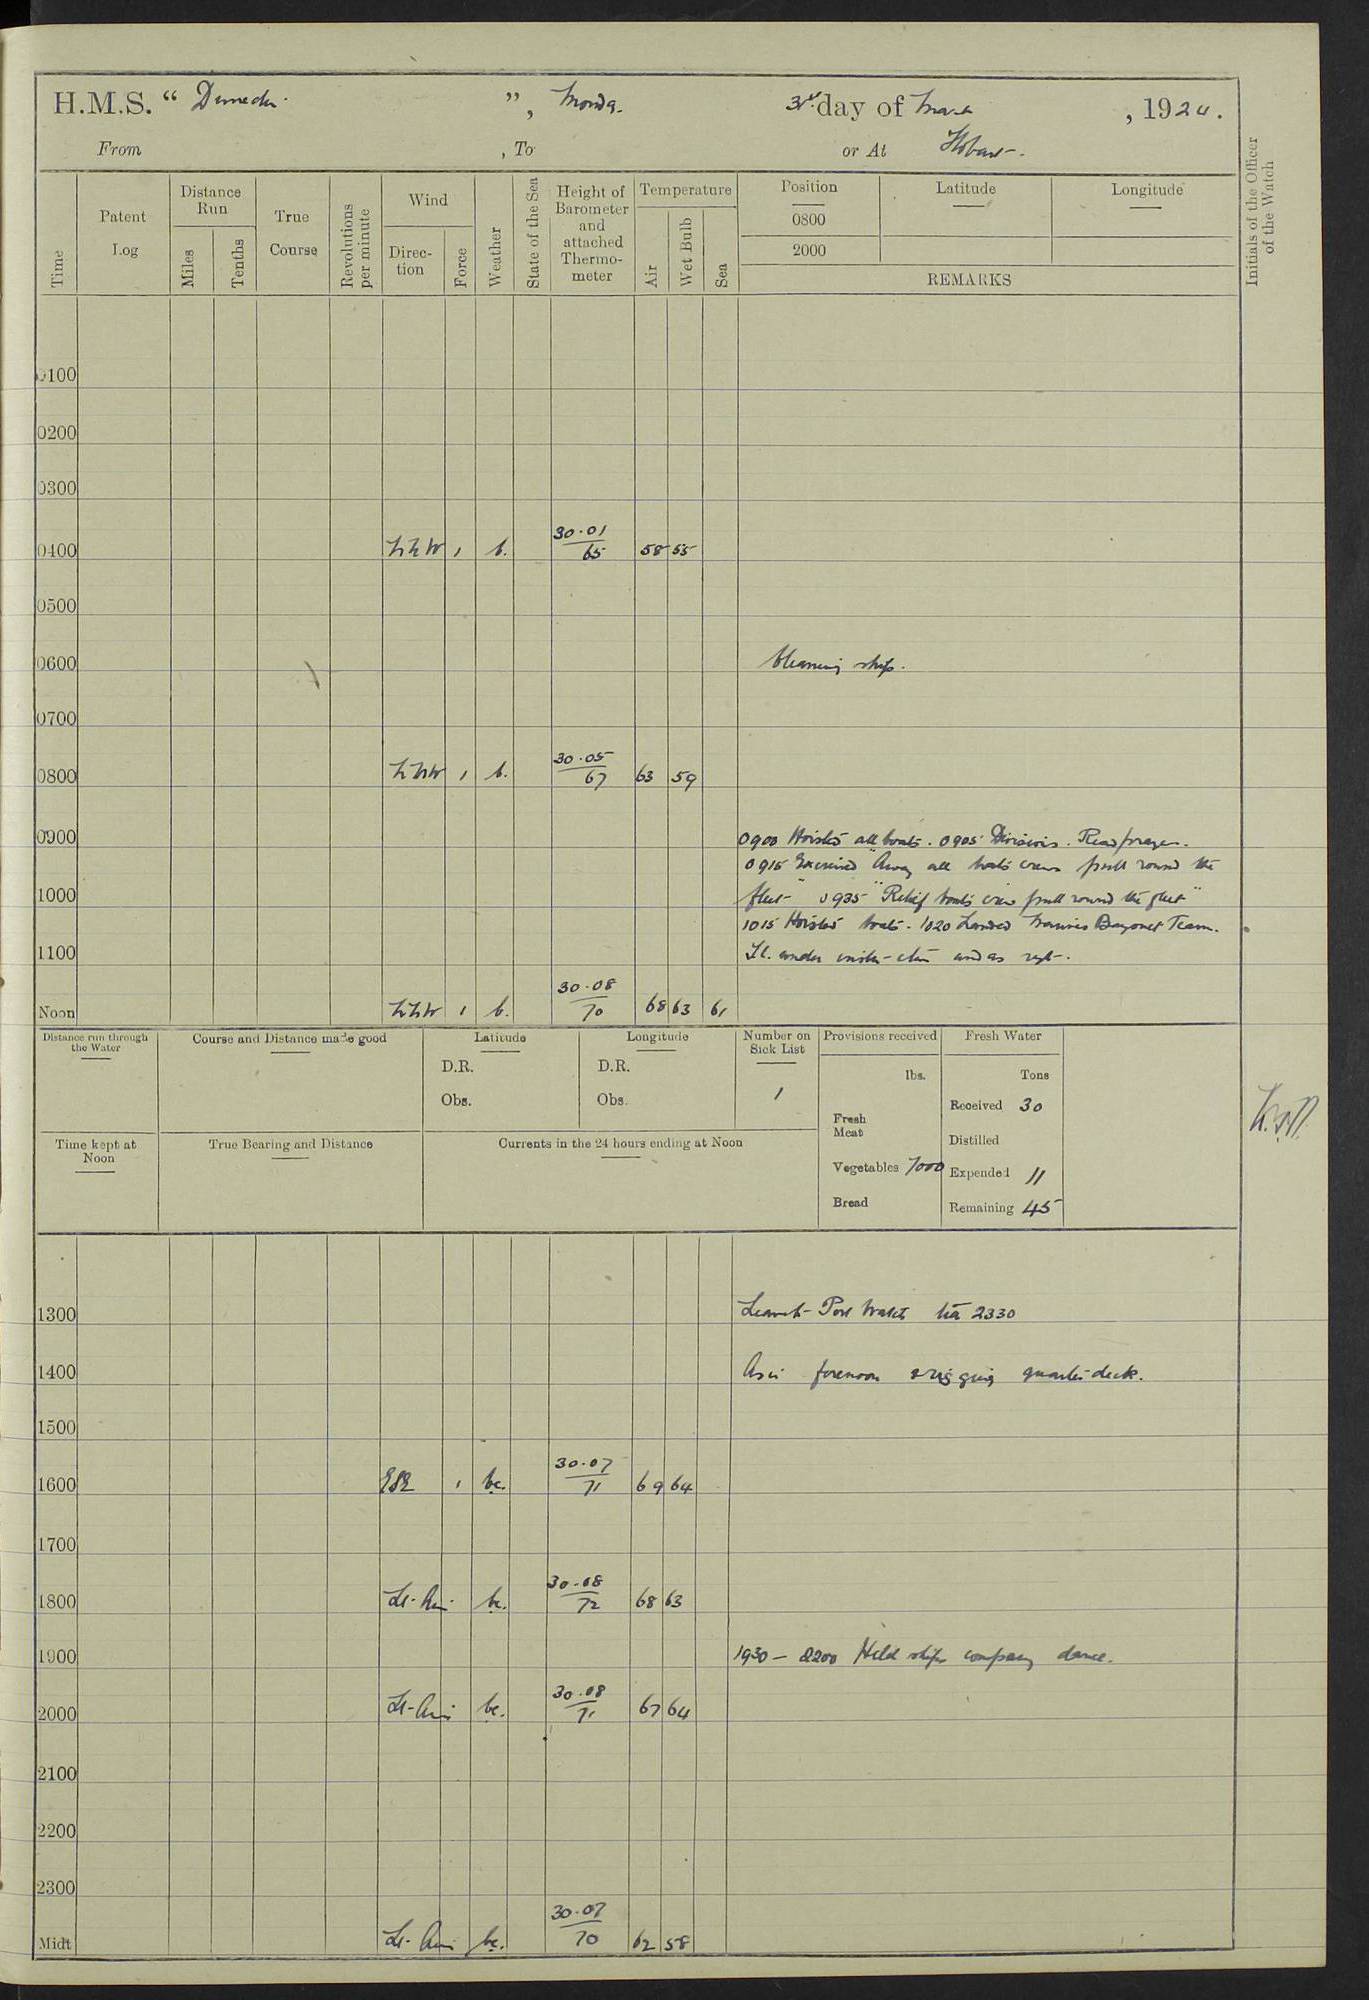 H.M.S. “ ”, Monday. 3rd day of March, 1924.
From , To or At Hobart.
Time
Patent Log
Distance Run
Miles
Tenths
True Course
Revolutions per minute
Wind
Direction
Force
Weather
State of the Sea
Height of Barometer and attached Thermometer
Temperature
Air
Wet Bulb
Sea
Position
0800
2000
Latitude
Longitude
REMARKS
Initials of the Officer of the Watch
0100
0200
0300
0400 NNW 1 b. 30.01 65 58 55
0500
0600 Cleaning ship.
0700
0800 NNW 1 b. 30.05 67 63 59
0900 0900 Hoisted all boats. 0905 Divisions. Read prayers.
0915 Exercised "Away all boats crews pull round the
1000 fleet" 0935 "Relief boats crews pull round the fleet"
1015 Hoisted boats. 1020 Landed Marines Bayonet Team.
1100 and as reqt.
Noon NNW 1 b. 30.08 70 68 63 61
Distance run through the Water
Course and Distance made good
Latitude
D.R.
Obs.
Longitude
D.R.
Obs.
Number on Sick List
1
Provisions received
lbs.
Fresh Meat
Vegetables 7000
Bread
Fresh Water
Tons
Received 30
Distilled
Expended 11
Remaining 45
Time kept at Noon
True Bearing and Distance
Currents in the 24 hours ending at Noon
1300 Leave to Port Watch till 2330
1400 As in forenoon & rigging quarter deck.
1500
1600 ESE 1 bc. 30.07 71 69 64
1700
1800 Lt. Airs bc. 30.08 72 68 63
1900 1930 — 2200 Held ships company dance.
2000 Lt. Airs bc. 30.08 71 67 64
2100
2200
2300
Midt Lt. Airs bc. 30.07 70 62 58